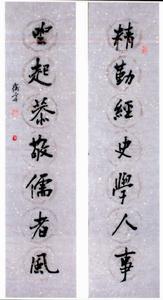 精勤經史學人事
坐起恭敬儒者風